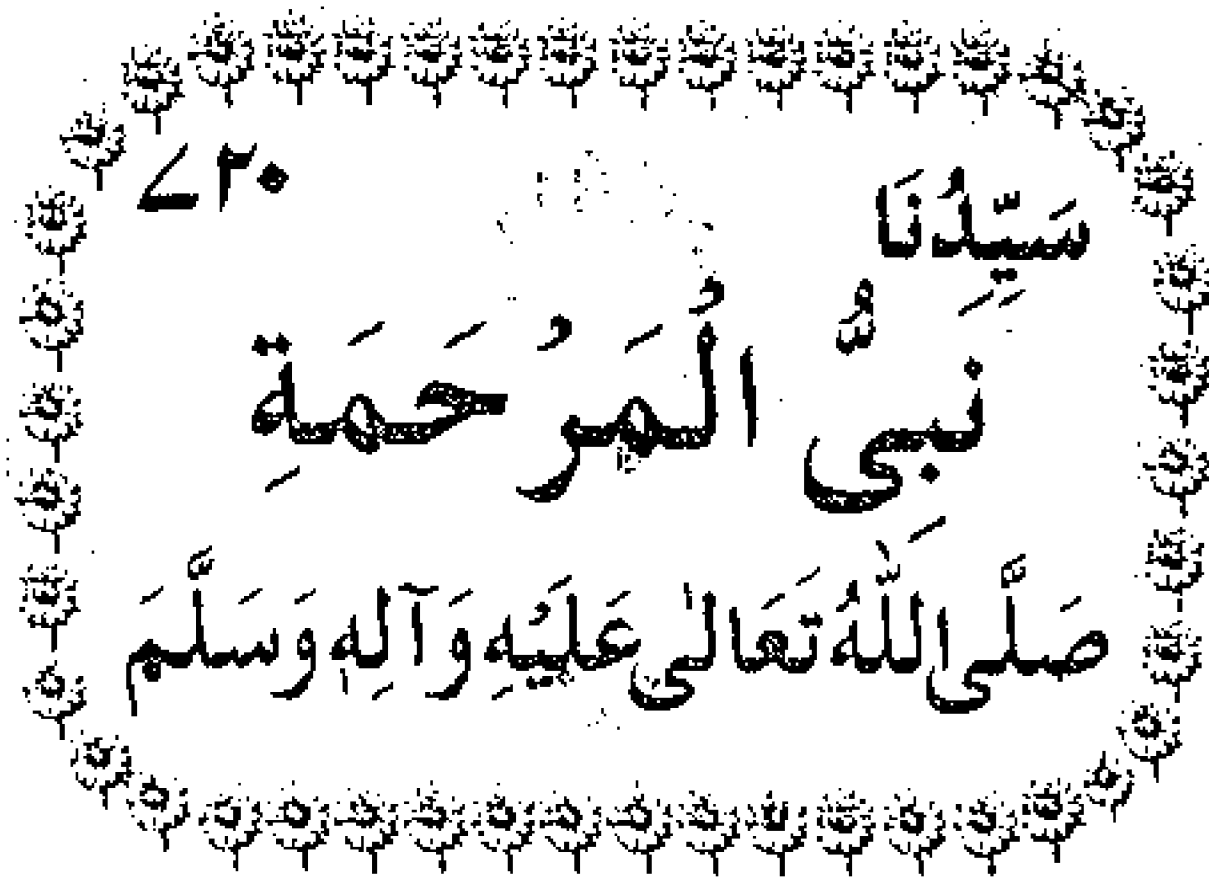 سَيِّدُنَا ۷۲۰
نَبِىُّ الْمَرْحَمَةِ
صَلَّى اللّٰهُ تَعَالىٰ عَلَيْهِ وَآلِهٖ وَسَلَّمَ